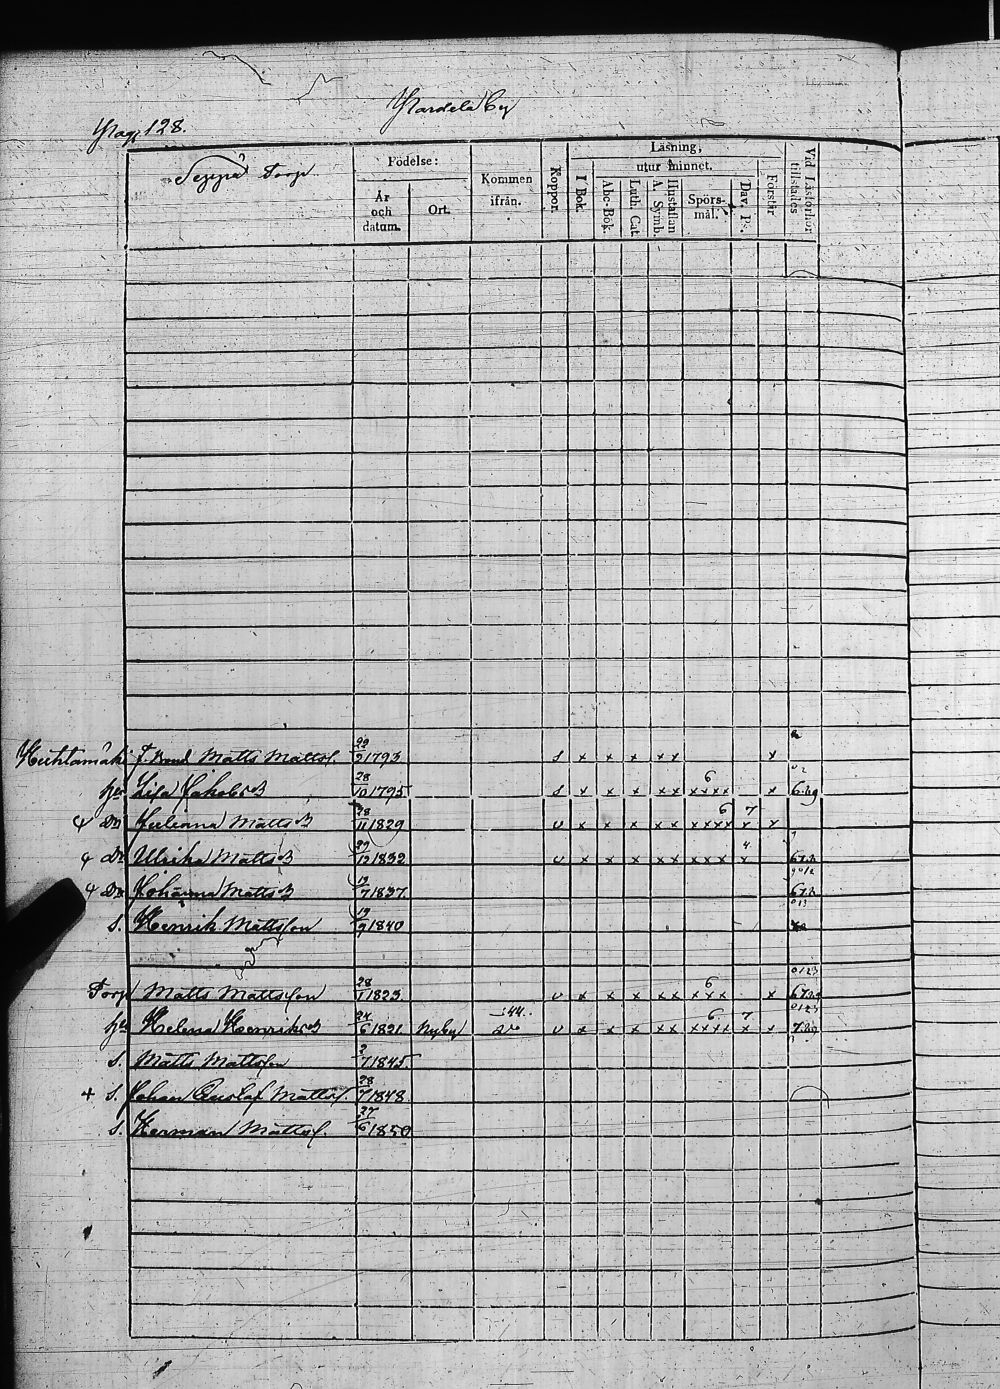 Pag. 128.
Seppä Torp
Födelse:
År och datum.
Ort.
Kommen ifrån.
Koppor.
Läsning,
I Bok.
utur minnet.
Abc-Bok.
Luth. Cat.
Hustaflan A. Symb.
Spörs-mål.
Dav. Ps.
Förstår
Vid Läsförhör tillstädes
Huhtamäki f. Bond Matts Matts f. 22/2 1793 s x x x x x x x
hu Lisa Jakobs D 28/10 1795 s x x x x x x x x x x 6 x
4 Dr Juliana Matts D 28/11 1829 v x x x x x x x x x x 6 7 x x
4 Dr Ulrika Matts D 29/12 1832 v x x x x x x x x x 4 x
4 Dr Johanna Matts D 19/7 1837.
S. Henrik Mattsson 19/9 1840
Torp Matts Mattsson 28/1 1823 v x x x x x x x x x 6 x
hu Helena Henriks D 24/6 1821 Nyby 44. v x x x x x x x x x x 6 7 x x
S. Matts Mattsson 2/7 1845.
+ S. Johan Gustaf Matts f. 28/7 1848
S. Herman Matts f. 27/6 1850